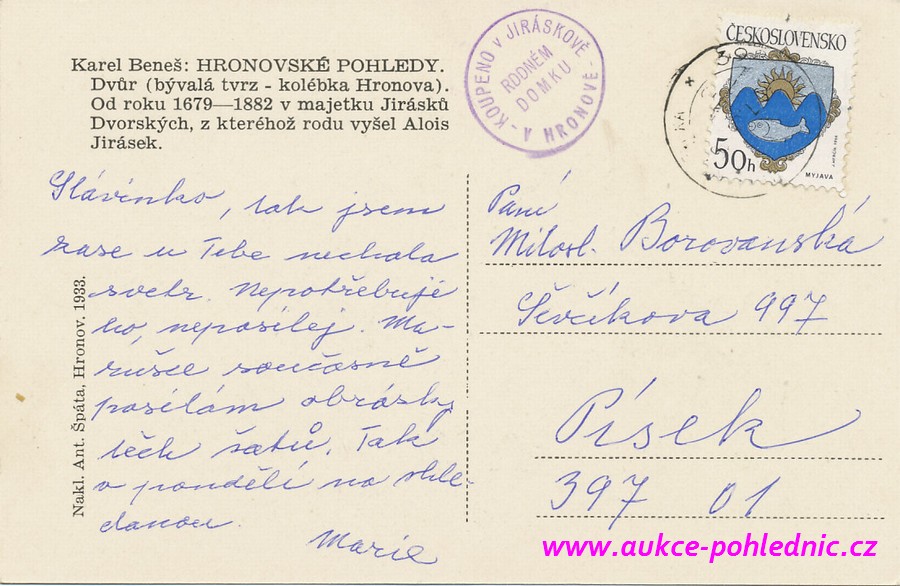 Karel Beneš: HRONOVSKÉ POHLEDY.
Dvůr (bývalá tvrz - kolébka Hronova).
Od roku 1679—1882 v majetku Jirásků
Dvorských, z kteréhož rodu vyšel Alois
Jirásek.
KOUPENO V JIRÁSKOVĚ
RODNÉM
DOMKU
- V HRONOVĚ -
ČESKOSLOVENSKO
50h
MYJAVA
Slávinko, tak jsem
zase u Tebe nechala
svetr. Nepotřebuji
ho, neposílej. Ma-
rušce současně
posílám obrázky
těch šatů. Tak
v pondělí na shle-
danou.
Marie
Paní
Milosl. Borovanská
Ševčíkova 997
Písek
397 01
Nakl. Ant. Špáta, Hronov. 1933.
www.aukce-pohlednic.cz